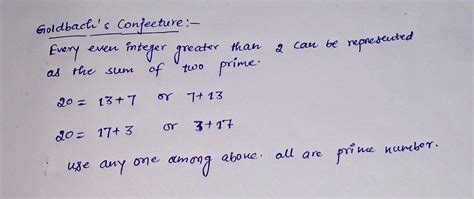 Goldbach's Conjecture:-
Every even integer greater than 2 can be represented
as the sum of two prime.
20 = 13+7 or 7+13
20 = 17+3 or 3+17
use any one among above. all are prime number.